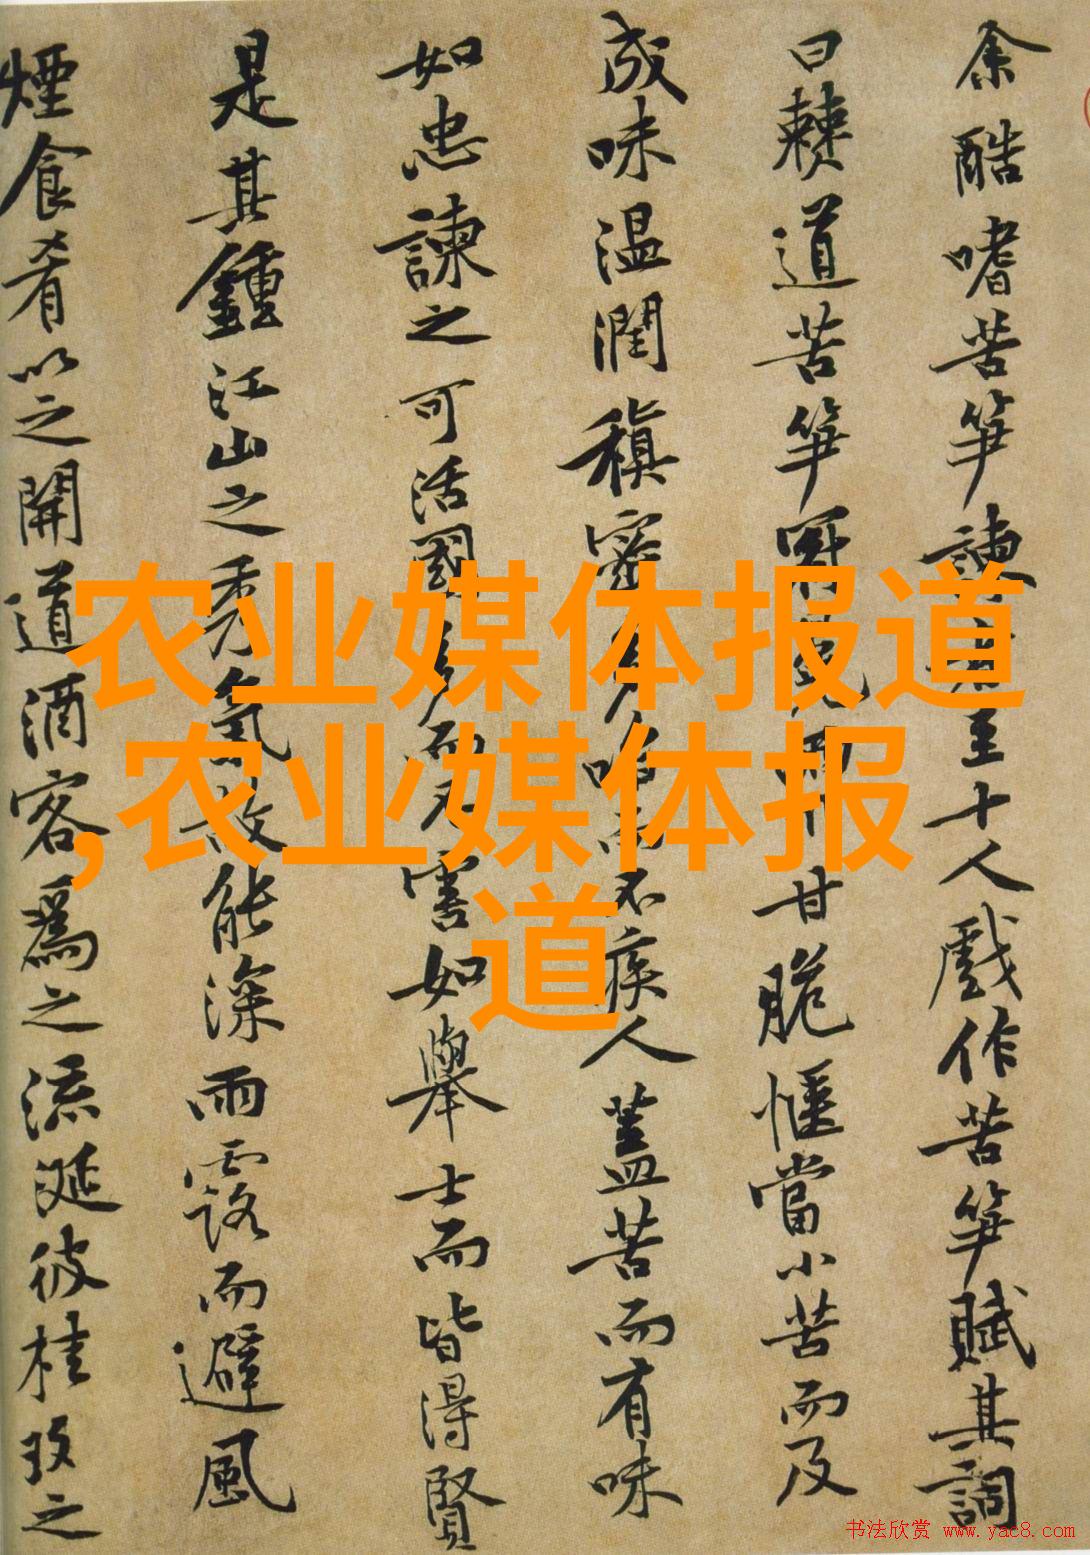 余酷嗜苦笋諫者至十人戲作苦笋賦其詞
曰僰道苦笋冠冕兩川甘脆愜當小苦而及
成味温潤稹密多啗而不疾人蓋苦而有味
如忠諫之可活國多而不害如舉士而皆得賢
是其鍾江山之秀氣故能深雨露而避風
煙食肴以之開道酒客為之流涎彼桂玫之
农业媒体报道
,农业媒体报
道
书法欣赏 www.yac8.com